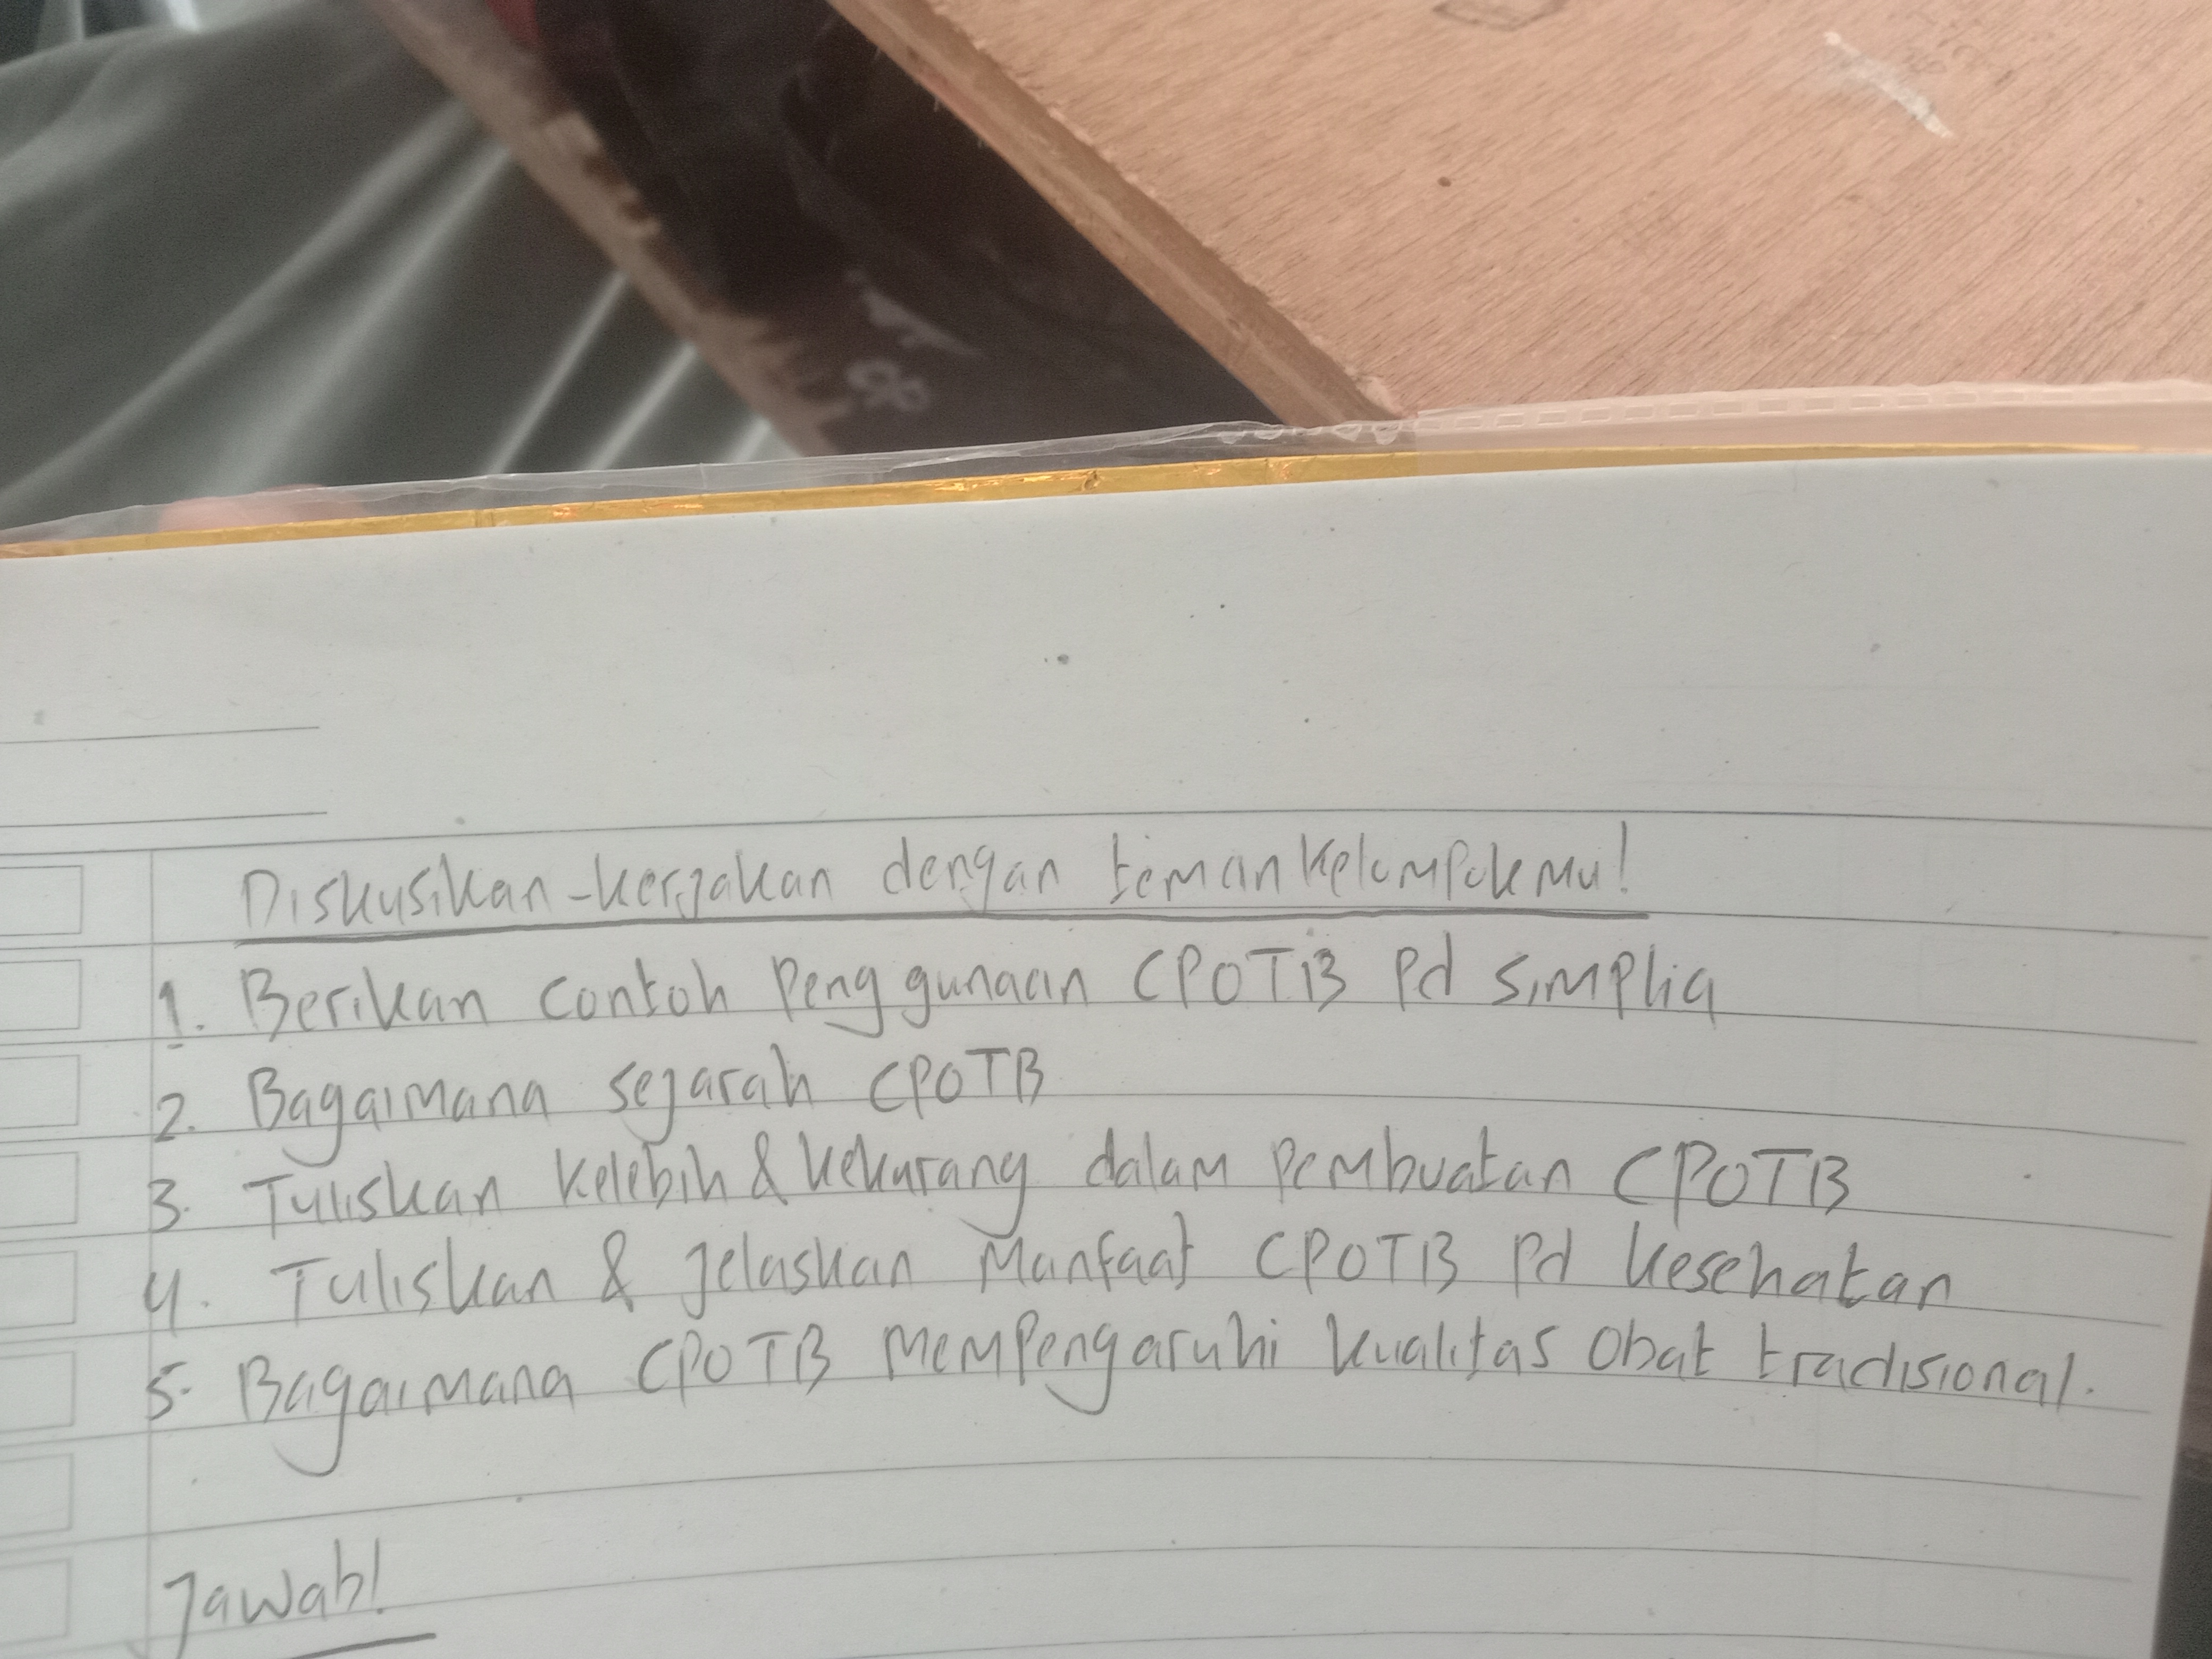 Diskusikan-kerjakan dengan teman kelompokmu!
1. Berikan contoh penggunaan CPOTB pd simplia
2. Bagaimana sejarah CPOTB
3. Tuliskan kelebih & kekurang dalam pembuatan CPOTB
4. Tuliskan & jelaskan manfaat CPOTB pd kesehatan
5. Bagaimana CPOTB mempengaruhi kualitas obat tradisional.
Jawab!